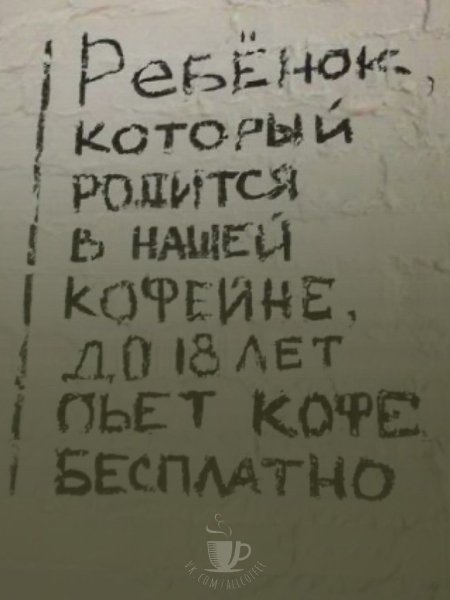 Ребёнок,
который
родится
в нашей
кофейне,
до 18 лет
пьет кофе
бесплатно
VK.COM/ALLCOFFEE